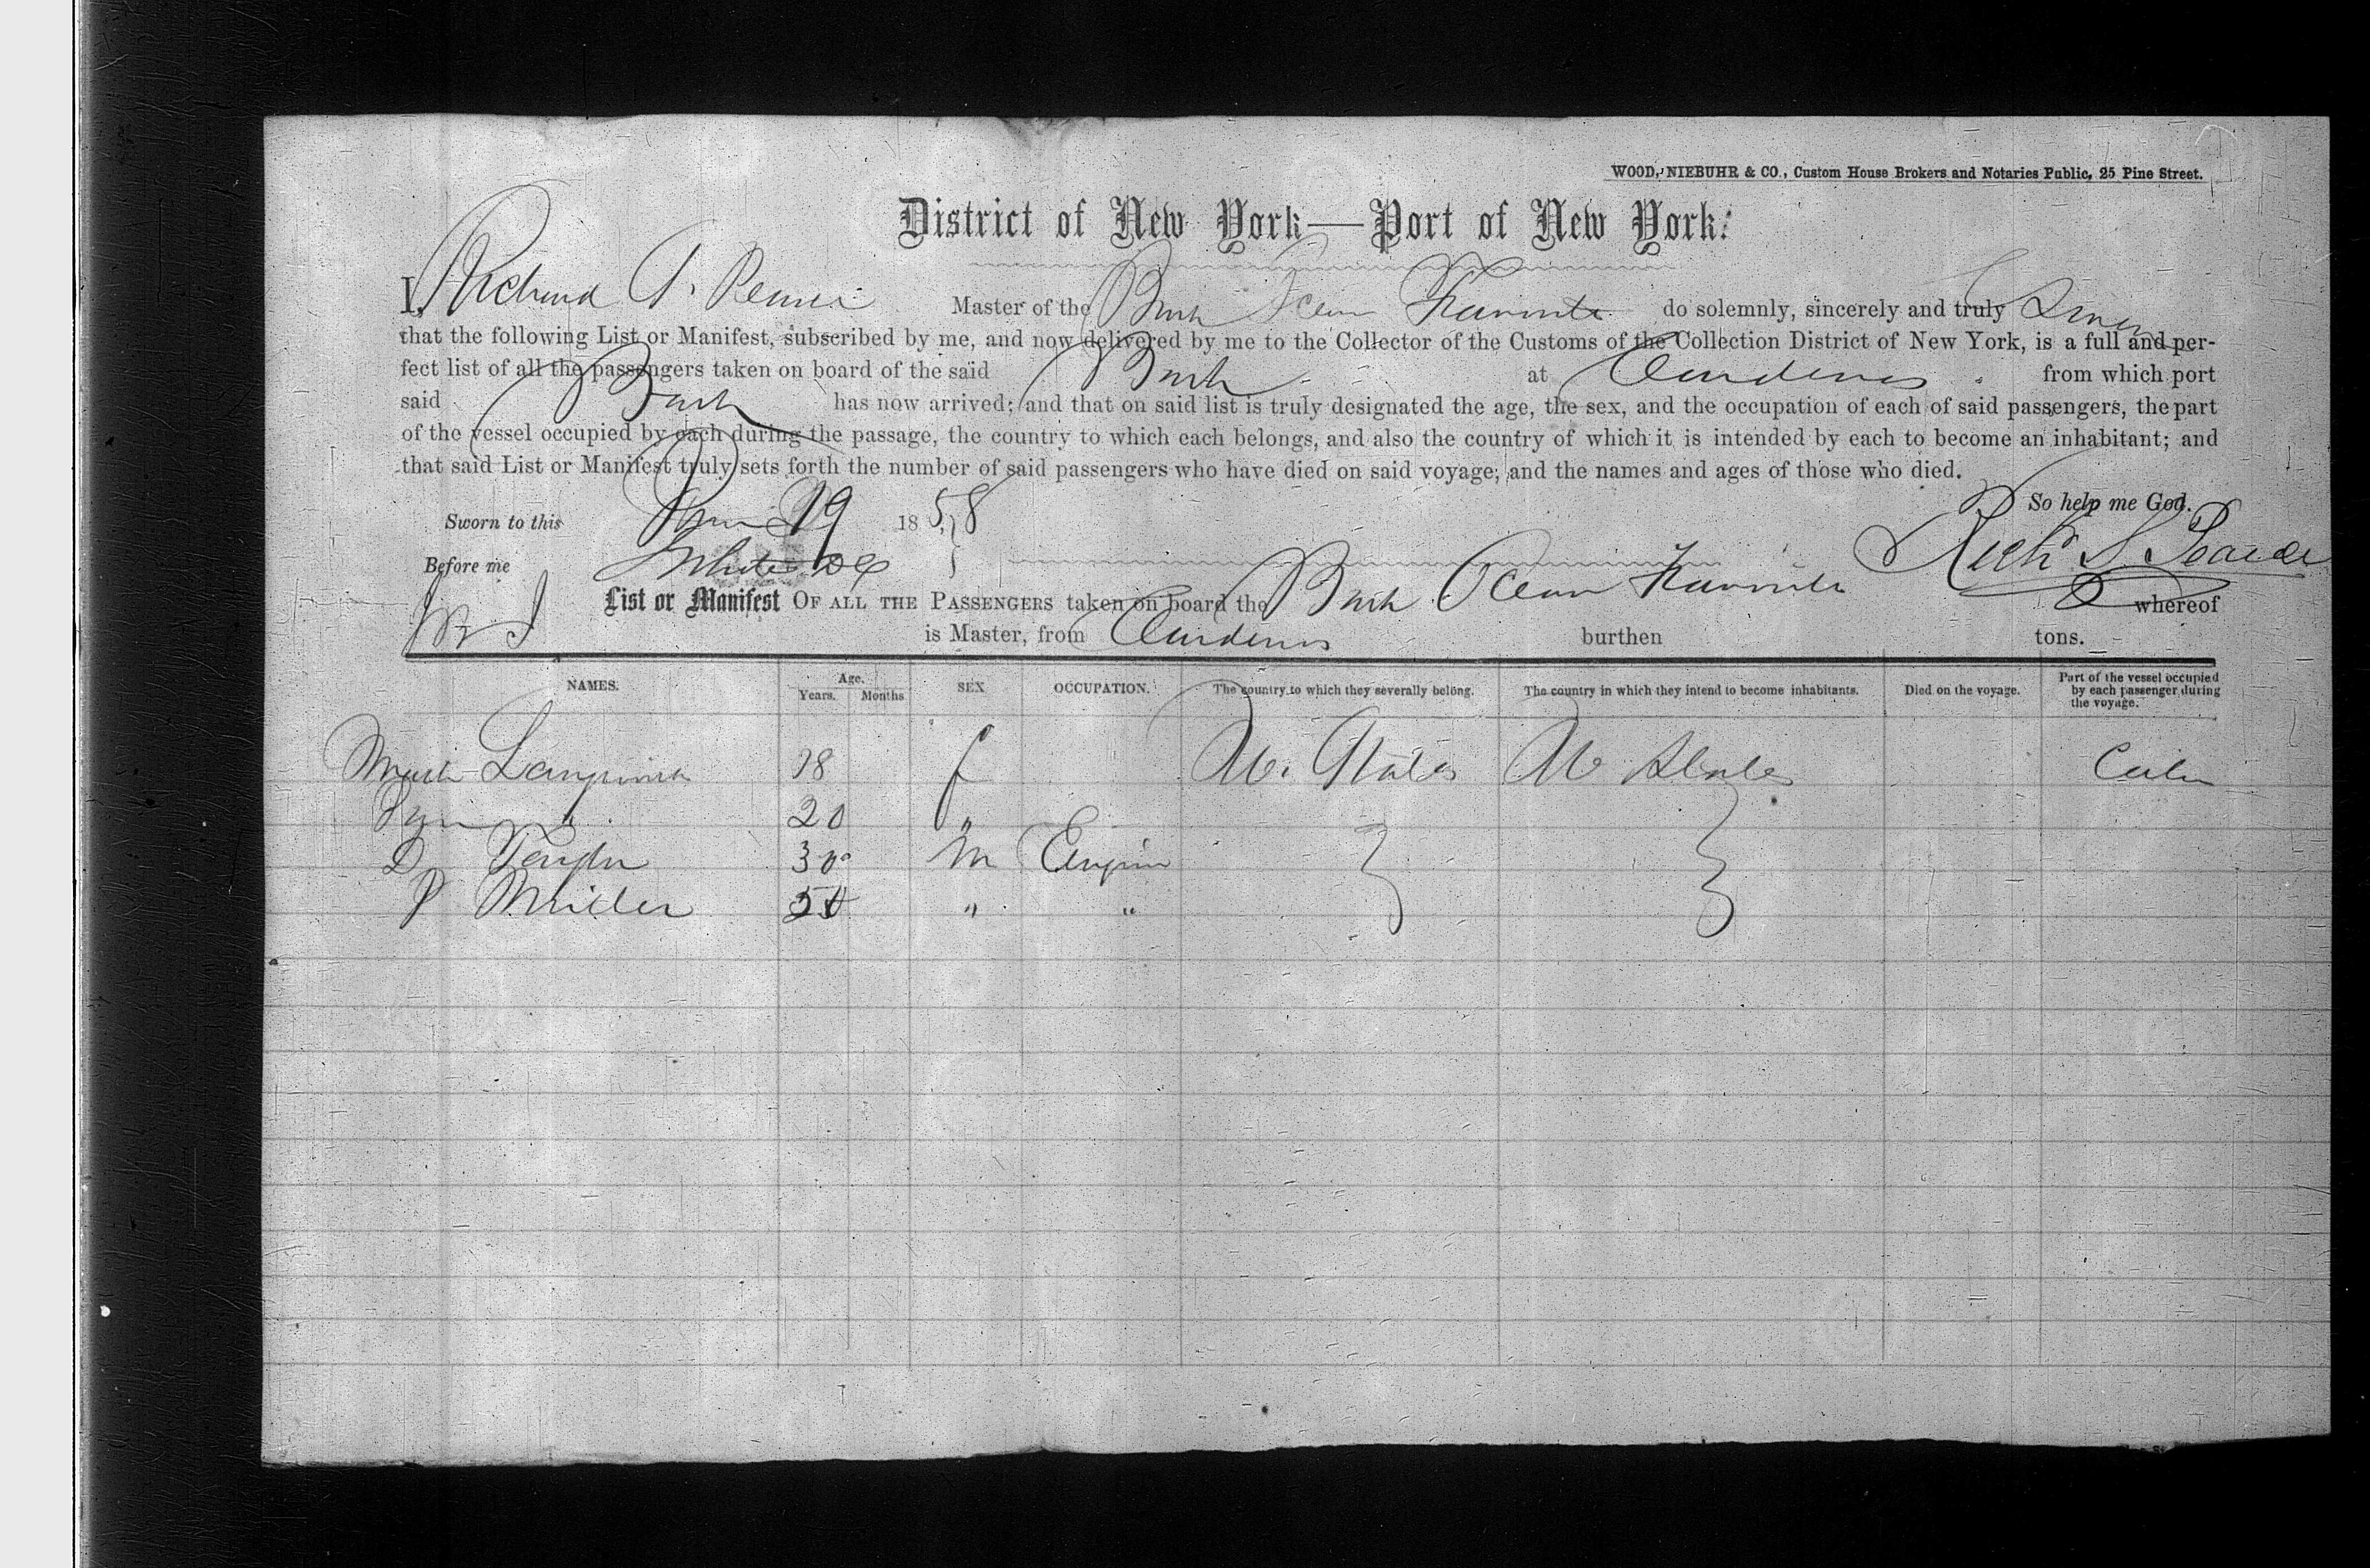 WOOD, NIEBUHR & CO., Custom House Brokers and Notaries Public, 25 Pine Street.
District of New York—Port of New York.
I, Richard Master of the Bark Ocean Favorite do solemnly, sincerely and truly Swear
that the following List or Manifest, subscribed by me, and now delivered by me to the Collector of the Customs of the Collection District of New York, is a full and per-
fect list of all the passengers taken on board of the said Bark at Cardenas from which port
said Bark has now arrived; and that on said list is truly designated the age, the sex, and the occupation of each of said passengers, the part
of the vessel occupied by each during the passage, the country to which each belongs, and also the country of which it is intended by each to become an inhabitant; and
that said List or Manifest truly sets forth the number of said passengers who have died on said voyage; and the names and ages of those who died.
So help me God.
Sworn to this 19 1858
Before me
List or Manifest OF ALL THE PASSENGERS taken on board the Bark Ocean Favorite whereof
is Master, from Cardenas burthen tons.
NAMES. Age. Years. Months SEX OCCUPATION. The country to which they severally belong. The country in which they intend to become inhabitants. Died on the voyage. Part of the vessel occupied by each passenger during the voyage.
18 f U. States U States Cabin
" 20 "
D Taylor 30 M Engin
" "